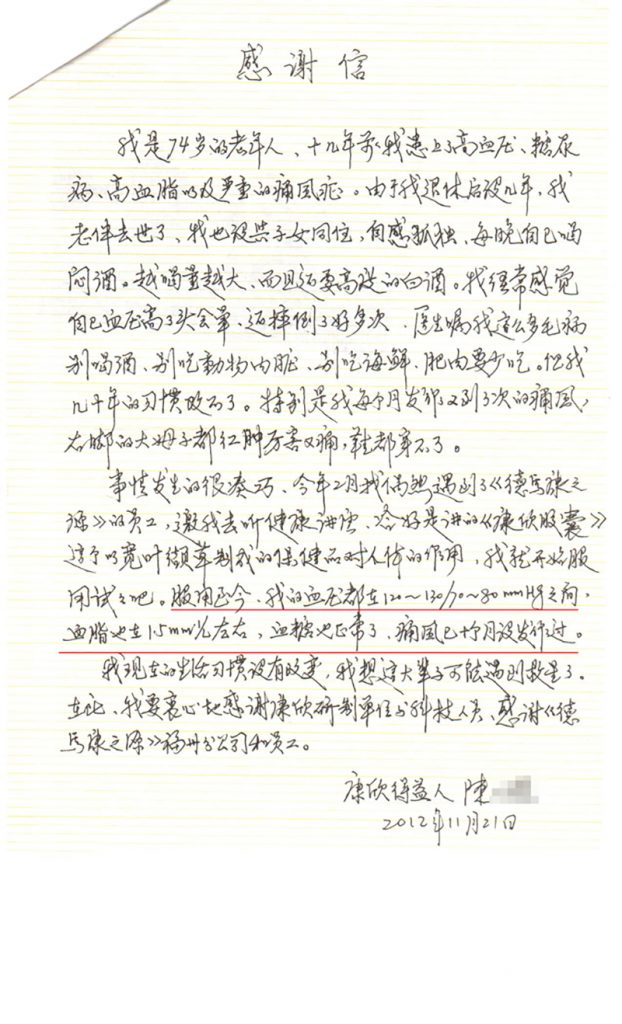 感谢信
我是74岁的老年人、十几年前我患上了高血压、糖尿
病、高血脂以及严重的痛风症。由于我退休后没几年,我
老伴去世了、我也没共子女同住,自感孤独、每晚自己喝
闷酒。越喝量越大、而且还要高度的白酒。我经常感觉
自己血压高了头会晕、还摔倒了好多次.医生嘱我这么多毛病
别喝酒、别吃動物内脏、别吃海鲜、肥肉要少吃。但我
几十年的习惯改不了。特别是我每个月发作2到3次的痛风,
右脚的大姆子都红肿厉害又痛,鞋都穿不了。
事情发生的很凑巧、今年2月我偶然遇到了《德馬康之
源》的员工,邀我去听健康讲座、恰好是讲的《康欣胶囊》
这个以宽叶缬草制成的保健品对人体的作用,我就开始服
用试之吧。服用至今、我的血压都在120～130/70～80mmHg之间,
血脂也在1.5mm/L左右,血糖也正常了、痛风已个月没发作过。
我现在的生活习惯没有改变,我想这大辈子可能遇到救星了。
在此、我要衷心地感谢康欣研制单位与科技人员、感谢《德
馬康之源》福州分公司和员工。
康欣得益人 陳
2012年11月21日